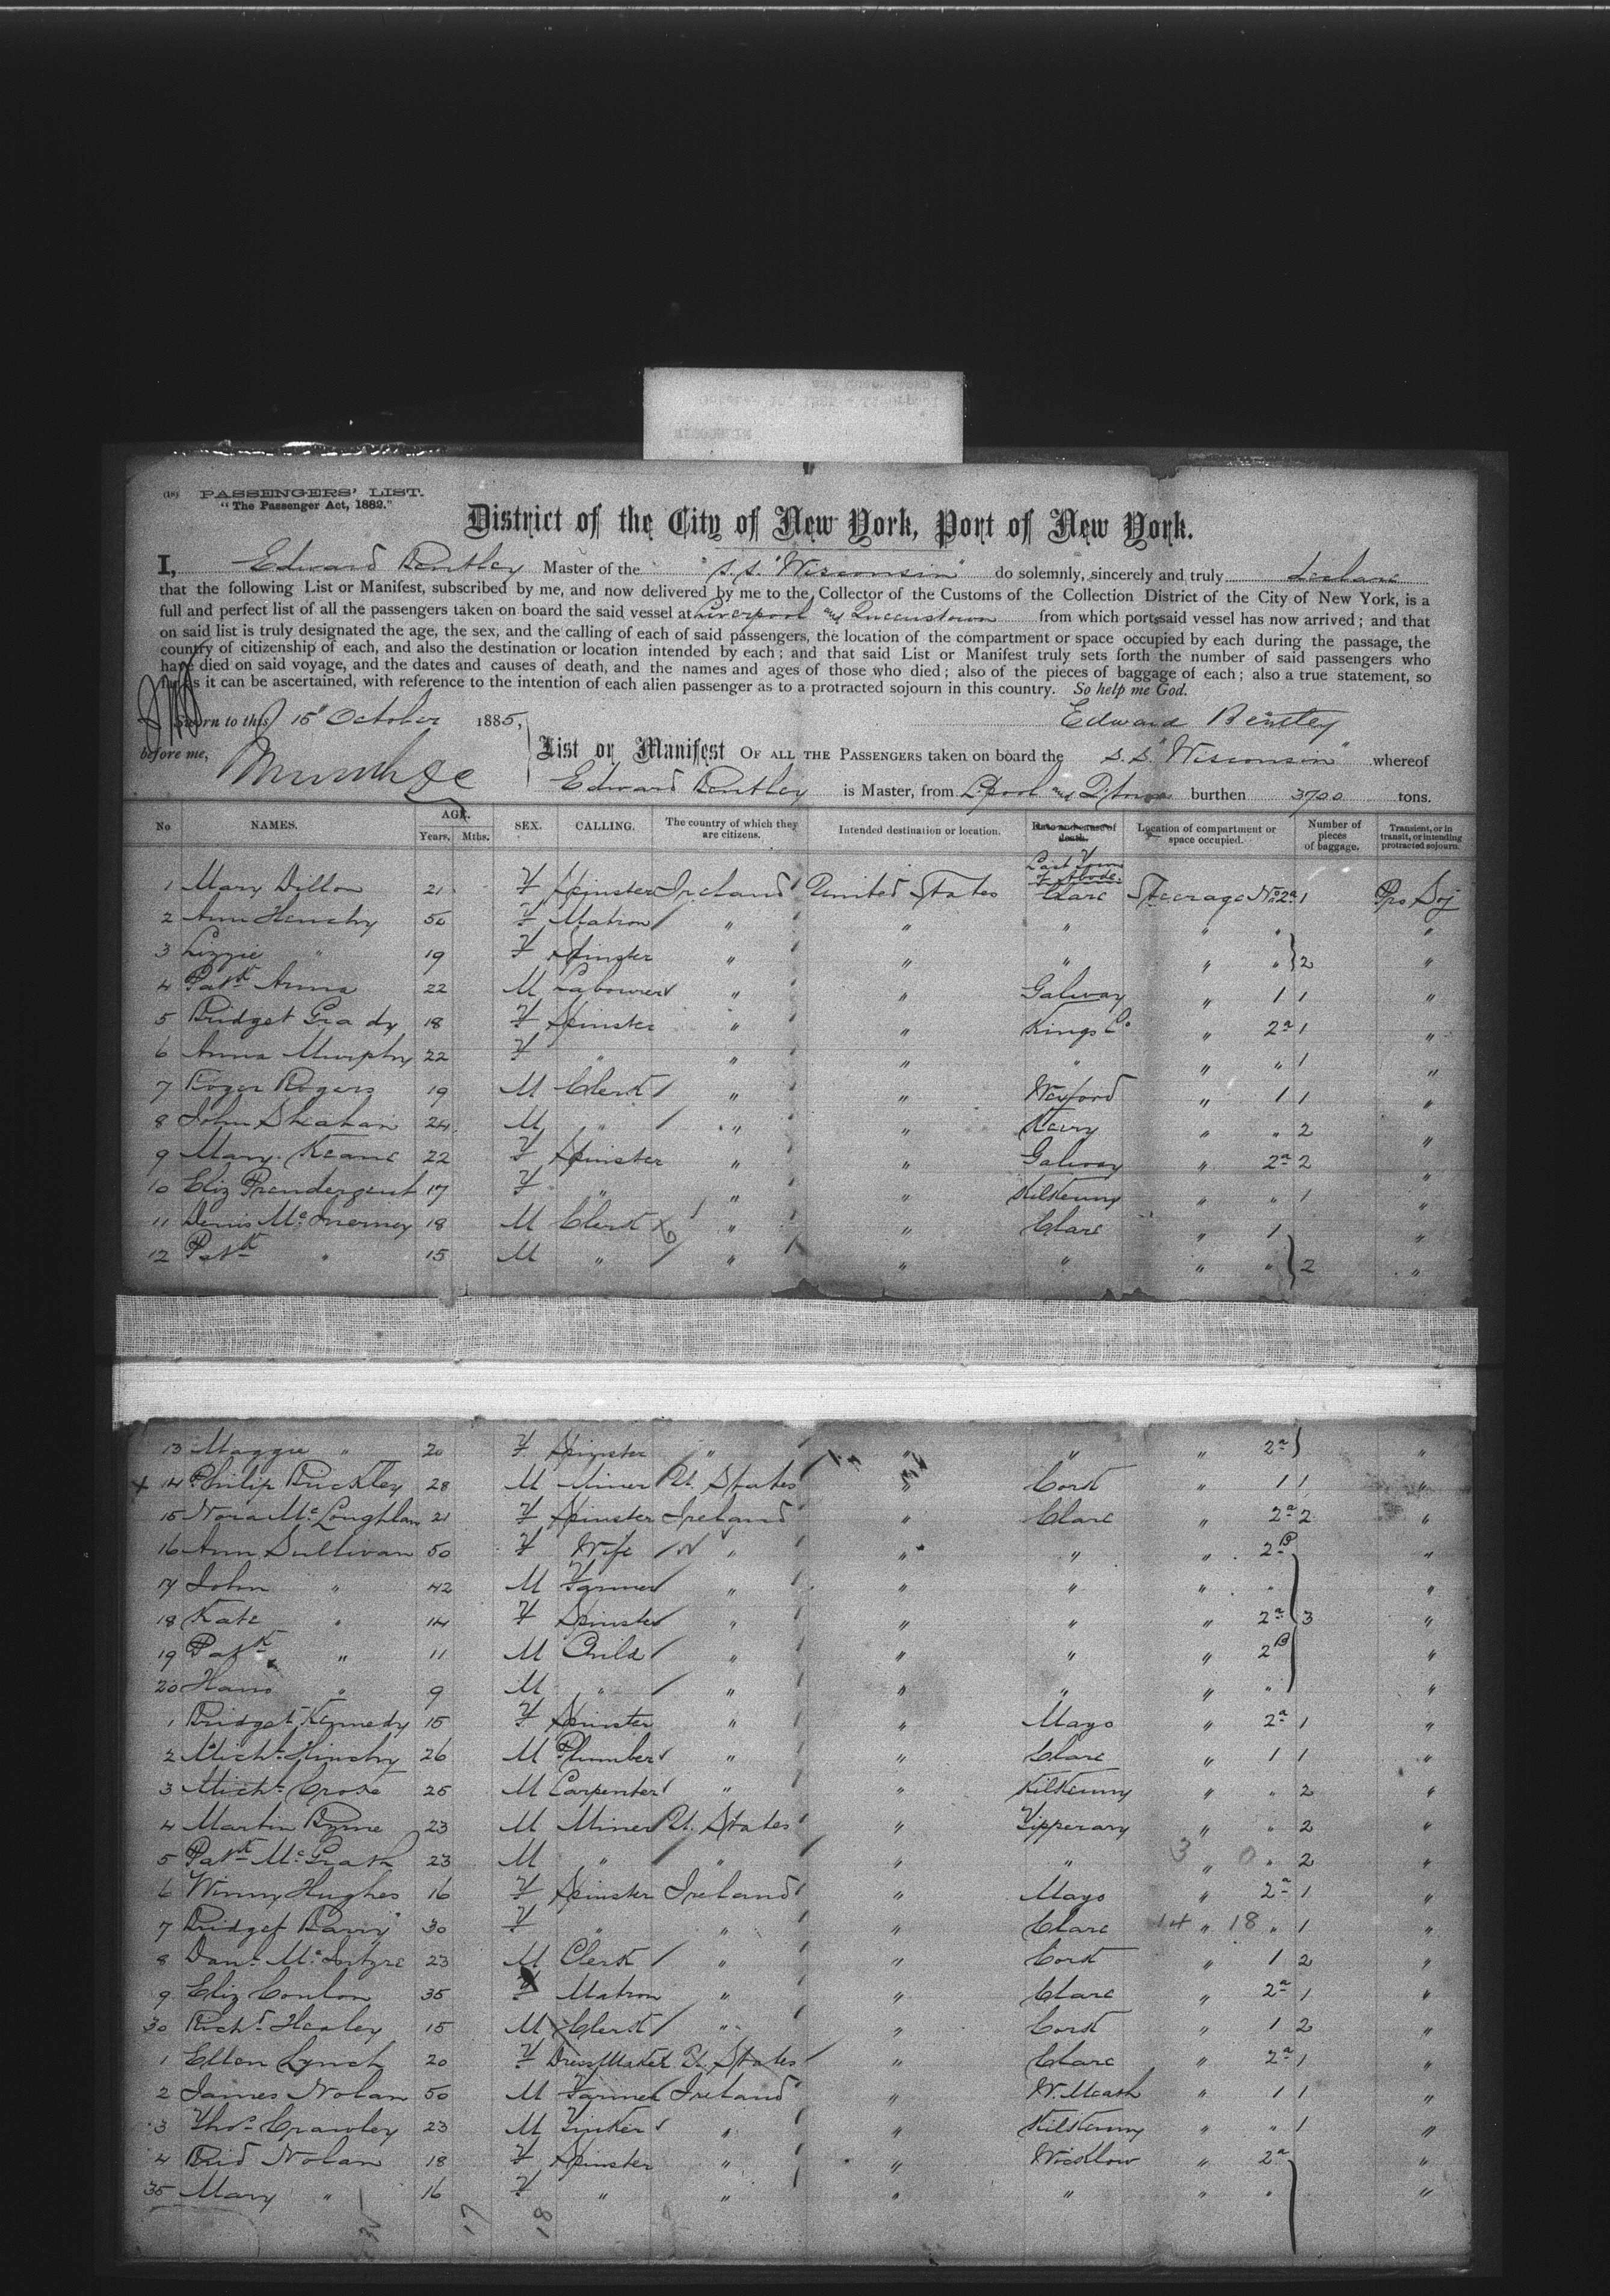 (18) PASSENGERS' LIST.
"The Passenger Act, 1882."
District of the City of New York, Port of New York.
I, Edward Bentley Master of the "S.S. Wisconsin" do solemnly, sincerely and truly declare
that the following List or Manifest, subscribed by me, and now delivered by me to the Collector of the Customs of the Collection District of the City of New York, is a
full and perfect list of all the passengers taken on board the said vessel at Liverpool and Queenstown from which ports said vessel has now arrived; and that
on said list is truly designated the age, the sex, and the calling of each of said passengers, the location of the compartment or space occupied by each during the passage, the
country of citizenship of each, and also the destination or location intended by each; and that said List or Manifest truly sets forth the number of said passengers who
have died on said voyage, and the dates and causes of death, and the names and ages of those who died; also of the pieces of baggage of each; also a true statement, so
far as it can be ascertained, with reference to the intention of each alien passenger as to a protracted sojourn in this country. So help me God.
Sworn to this 15" October 1885, Edward Bentley
before me,
List or Manifest OF ALL THE PASSENGERS taken on board the S.S. "Wisconsin" whereof
Edward Bentley is Master, from L'pool and Q'town burthen 3700 tons.
No NAMES. AGE. Years. Mths. SEX. CALLING. The country of which they are citizens. Intended destination or location. Date and cause of death. Last Town of Abode. Location of compartment or space occupied. Number of pieces of baggage. Transient, or in transit, or intending protracted sojourn.
1 Mary Dillon 21 F Spinster Ireland United States Clare Steerage No 2a 1 Pro Soj
2 Ann Henchy 50 F Matron " " " " " "
3 Lizzie " 19 F Spinster " " " " " 2 "
4 Patk Anna 22 M Labourer " " Galway " 1 1 "
5 Bridget Grady 18 F Spinster " " Kings Co " 2a 1 "
6 Anna Murphy 22 F " " " " " " 1 "
7 Roger Rogers 19 M Clerk " " Wexford " 1 1 "
8 John Sheahan 24 M " " " Kerry " " 2 "
9 Mary Keane 22 F Spinster " " Galway " 2a 2 "
10 Eliz Prendergast 17 F " " " Kilkenny " " 1 "
11 Denis McInerney 18 M Clerk " " Clare " 1 "
12 Patk " 15 M " " " " " " 2 "
13 Maggie " 20 F Spinster " " " " 2a "
14 Philip Buckley 28 M Miner U. States " Cork " 1 1 "
15 Nora McLoughlan 21 F Spinster Ireland " Clare " 2a 2 "
16 Ann Sullivan 50 F Wife " " " " 2B "
17 John " 42 M Farmer " " " " " "
18 Kate " 14 F Spinster " " " " 2a 3 "
19 Patk " 11 M Child " " " " 2B "
20 " 9 M " " " " " " "
1 Bridget Kennedy 15 F Spinster " " Mayo " 2a 1 "
2 Michl Hinchy 26 M Plumber " " Clare " 1 1 "
3 Michl 25 M Carpenter " " Kilkenny " " 2 "
4 Martin Byrne 23 M Miner U. States " Tipperary " " 2 "
5 Patk McGrath 23 M " " " " 3 " 0 " 2 "
6 Winny Hughes 16 F Spinster Ireland " Mayo " 2a 1 "
7 Bridget Barry 30 F " " " Clare 14 " 18 " 1 "
8 Danl McIntyre 23 M Clerk " " Cork " 1 2 "
9 Eliz Conlon 35 F Matron " " Clare " 2a 1 "
30 Richd Healey 15 M Clerk " " Cork " 1 2 "
1 Ellen Lynch 20 F Dress Maker U. States " Clare " 2a 1 "
2 James Nolan 50 M Farmer Ireland " W. Meath " 1 1 "
3 Thos Crawley 23 M Tinker " " Kilkenny " " 1 "
4 Brid Nolan 18 F Spinster " " Wicklow " 2a "
35 Mary " 16 F " " " " " " "
17 18